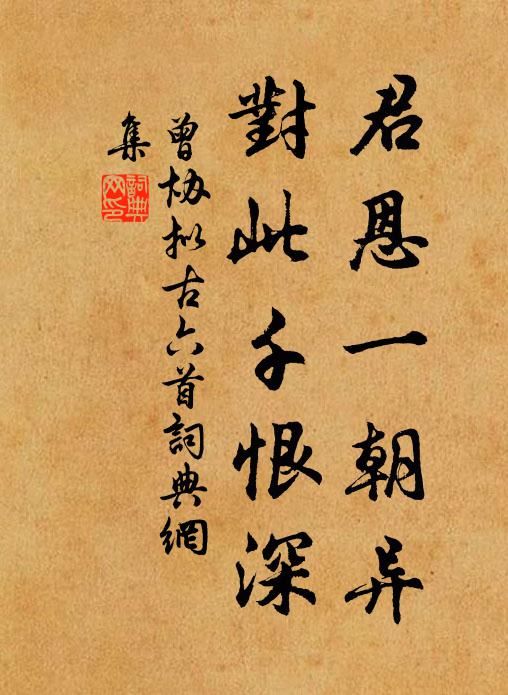 君恩一朝异
對此千恨深
曾协拟古六首詞典網
集
詞典
网印